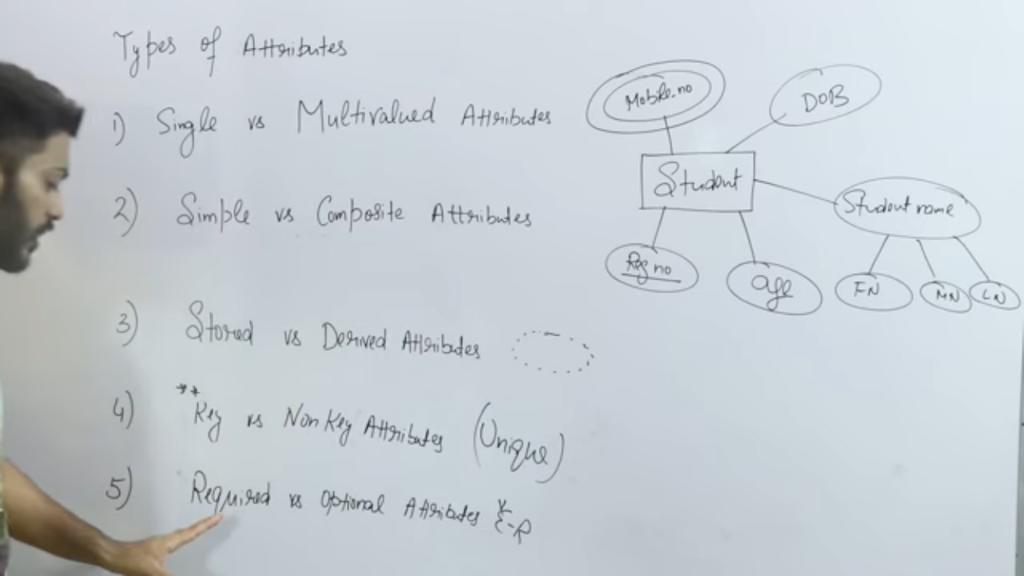 Types of Attributes
1) Single vs Multivalued Attributes
2) Simple vs Composite Attributes
3) Stored vs Derived Attributes
4) ** Key vs Non Key Attributes (Unique)
5) Required vs Optional Attributes
E-R
Mobile.no
DOB
Student
Student name
Reg no
age
FN
MN
LN